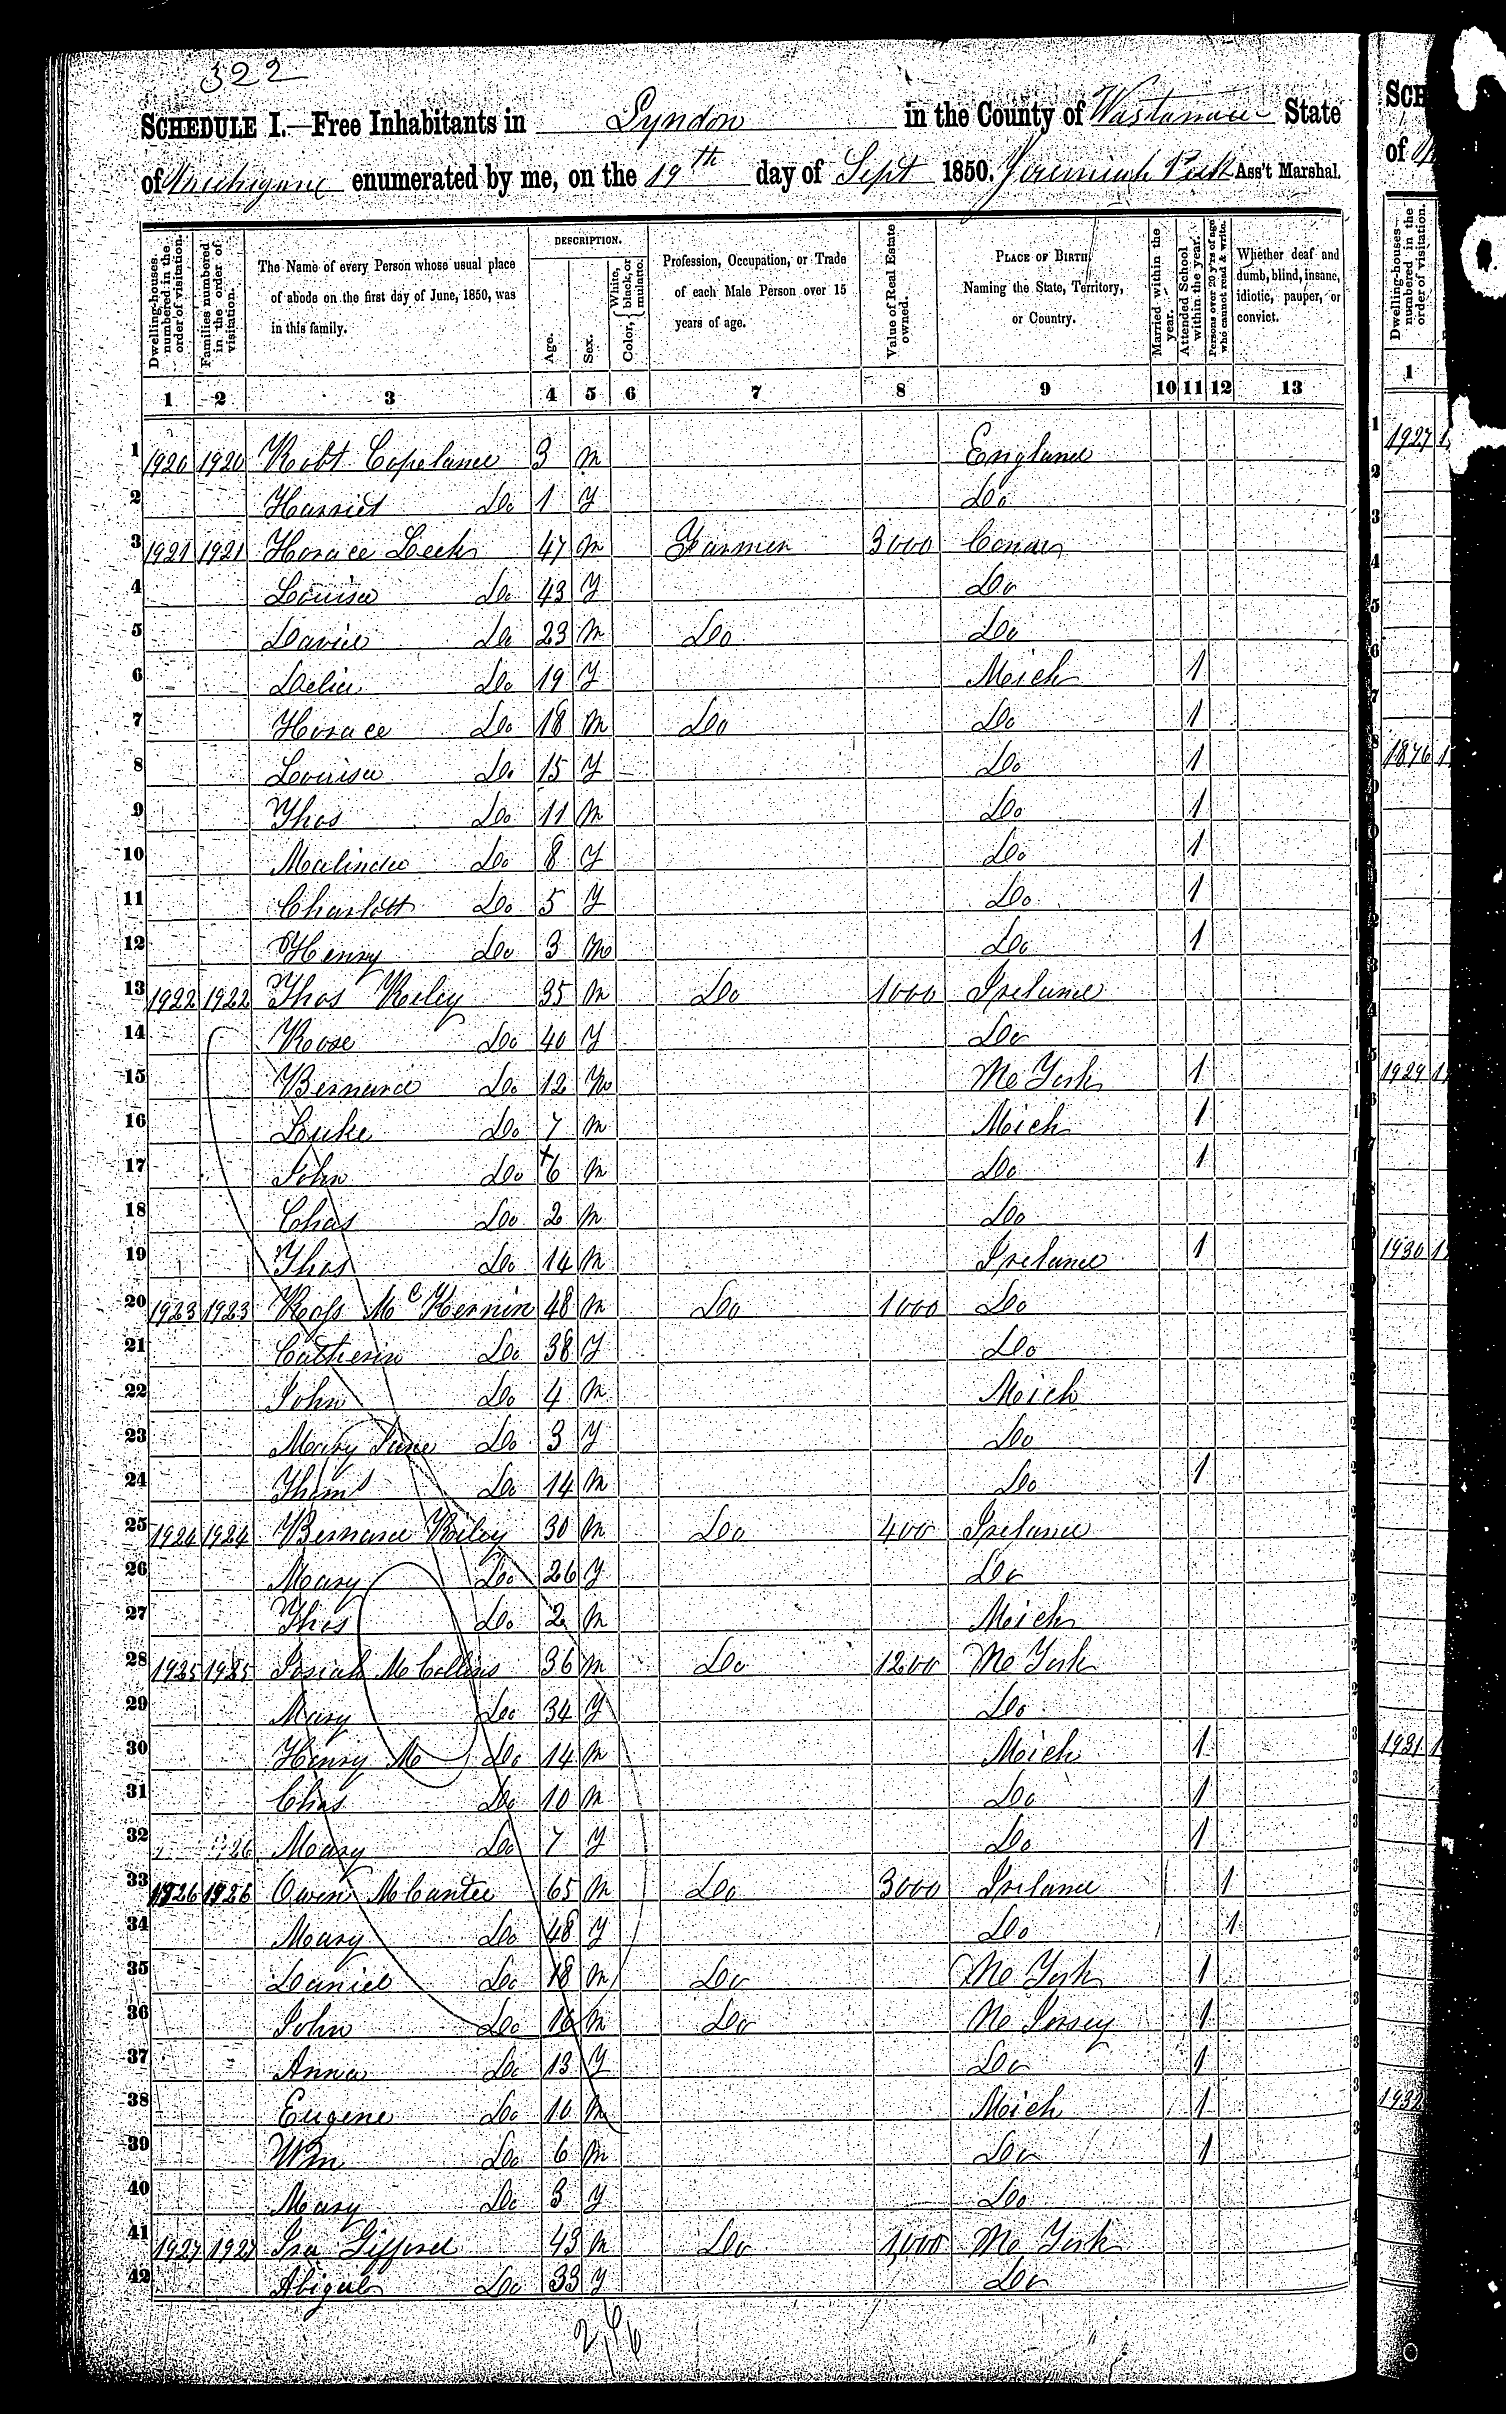 322
SCHEDULE I.—Free Inhabitants in Lyndon in the County of Wastanaw State
of Michigan enumerated by me, on the 19th day of Sept 1850. Jeremiah Peek Ass't Marshal.
Dwelling-houses numbered in the order of visitation.
Families numbered in the order of visitation.
The Name of every Person whose usual place of abode on the first day of June, 1850, was in this family.
DESCRIPTION.
Age.
Sex.
Color, { White, black, or mulatto.
Profession, Occupation, or Trade of each Male Person over 15 years of age.
Value of Real Estate owned.
PLACE OF BIRTH. Naming the State, Territory, or Country.
Married within the year.
Attended School within the year.
Persons over 20 y'rs of age who cannot read & write.
Whether deaf and dumb, blind, insane, idiotic, pauper, or convict.
1 2 3 4 5 6 7 8 9 10 11 12 13
1 1920 1920 Robt Copeland 3 m England
2 Harriet Do 1 f Do
3 1921 1921 Horace Leek 47 m Farmer 3000 Conn
4 Louisa Do 43 f Do
5 David Do 23 m Do Do
6 Delia Do 19 f Mich 1
7 Horace Do 18 m Do Do 1
8 Louisa Do 15 f Do 1
9 Thos Do 11 m Do 1
10 Malinda Do 8 f Do 1
11 Charlott Do 5 f Do 1
12 Henry Do 3 m Do 1
13 1922 1922 Thos Reiley 35 m Do 1000 Ireland
14 Rose Do 40 f Do
15 Bernard Do 12 m Ne York 1
16 Luke Do 7 m Mich 1
17 John Do 6 m Do 1
18 Chas Do 2 m Do
19 Thos Do 14 m Ireland 1
20 1923 1923 Ross McKernin 48 m Do 1000 Do
21 Catherin Do 38 f Do
22 John Do 4 m Mich
23 Mary Jane Do 3 f Do
24 Thoms Do 14 m Do 1
25 1924 1924 Bernard Reiley 30 m Do 400 Ireland
26 Mary Do 26 f Do
27 Thos Do 2 m Mich
28 1925 1925 Josiah McCollins 36 m Do 1200 Ne York
29 Mary Do 34 f Do
30 Henry M Do 14 m Mich 1
31 Chas Do 10 m Do 1
32 26 Mary Do 7 f Do 1
33 1926 1926 Owen McCantee 65 m Do 3000 Ireland 1
34 Mary Do 48 f Do 1
35 Daniel Do 18 m Do Ne York 1
36 John Do 16 m Do Ne Jersey 1
37 Anna Do 13 f Do 1
38 Eugene Do 10 m Mich 1
39 Wm Do 6 m Do 1
40 Mary Do 3 f Do
41 1927 1927 Ira Gifford 43 m Do 1,000 Ne York
42 Abigal Do 33 f Do
SCH
of
Dwelling-houses numbered in the order of visitation.
1
1927
1876
1929
1930
1931
1932